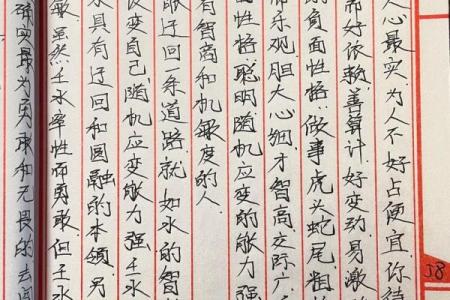 人心最实.为人不好占便宜.你待
而好依赖.善算计.好变动.易激
的负面性格.做事虎头蛇尾粗
而乐观.胆大心细.才智高.交际广.
性格聪明随机应变的能力强
有智商和机敏度的人.
迂回一条道路.就如水的智
改变自己.随机应变能力强.壬水
水具有迂回和圆融的本领.另
敢.虽然壬水率性而勇敢.但壬水
确实最为勇敢和无畏的去闯
58